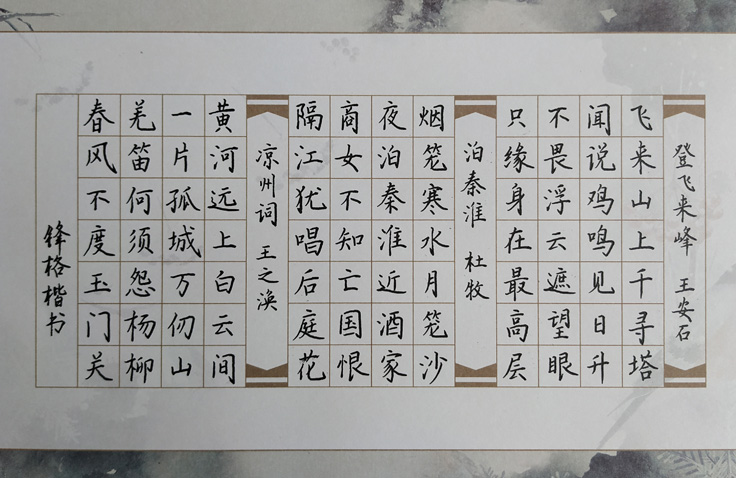 登飞来峰 王安石
飞来山上千寻塔
闻说鸡鸣见日升
不畏浮云遮望眼
只缘身在最高层
泊秦淮 杜牧
烟笼寒水月笼沙
夜泊秦淮近酒家
商女不知亡国恨
隔江犹唱后庭花
凉州词 王之涣
黄河远上白云间
一片孤城万仞山
羌笛何须怨杨柳
春风不度玉门关
锋格楷书